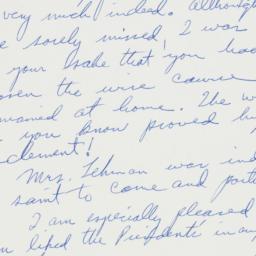 very much indeed. Although
sorely missed, I was
your sake that you had
osen the wise course
mained at home. The w
you know proved
clement!
Mrs. Lehman was ind
saint to come and
I am especially pleased
liked the President's inau